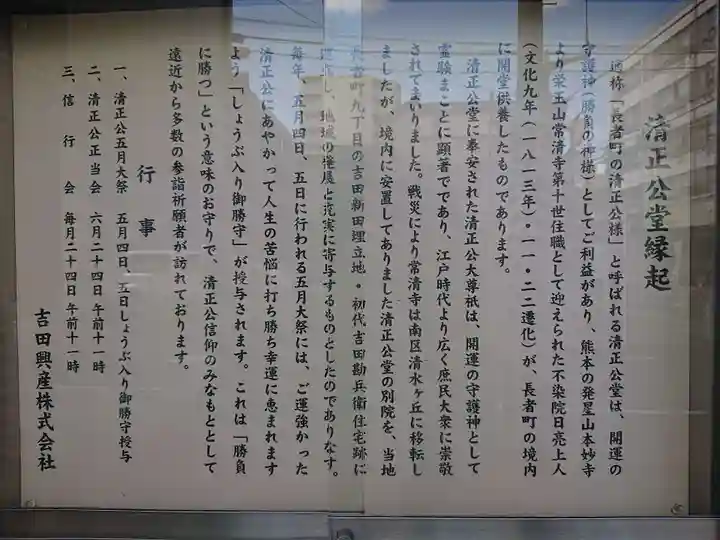 清正公堂縁起
通称「長者町の清正公様」と呼ばれる清正公堂は、開運の
守護神（勝負の神様）としてご利益があり、熊本の発星山本妙寺
より栄玉山常清寺第十世住職として迎えられた不染院日亮上人
（文化九年（一八一三年）・一一・二二遷化）が、長者町の境内
に開堂供養したものであります。
清正公堂に奉安された清正公大尊祇は、開運の守護神として
霊験まことに顕著でであり、江戸時代より広く庶民大衆に崇敬
されてまいりました。戦災により常清寺は南区清水ヶ丘に移転し
ましたが、境内に安置してありました清正公堂の別院を、当地
長者町九丁目の吉田新田埋立地・初代吉田勘兵衛住宅跡に
し、地域の発展と充実に寄与するものとしたのでありなす。
毎年、五月四日、五日に行われる五月大祭には、ご運強かった
清正公にあやかって人生の苦悩に打ち勝ち幸運に恵まれます
よう「しょうぶ入り御勝守」が授与されます。これは「勝負
に勝つ」という意味のお守りで、清正公信仰のみなもととして
遠近から多数の参詣祈願者が訪れております。
行事
一、清正公五月大祭 五月四日、五日しょうぶ入り御勝守授与
二、清正公正当会 六月二十四日午前十一時
三、信行会 毎月二十四日午前十一時
吉田興産株式会社